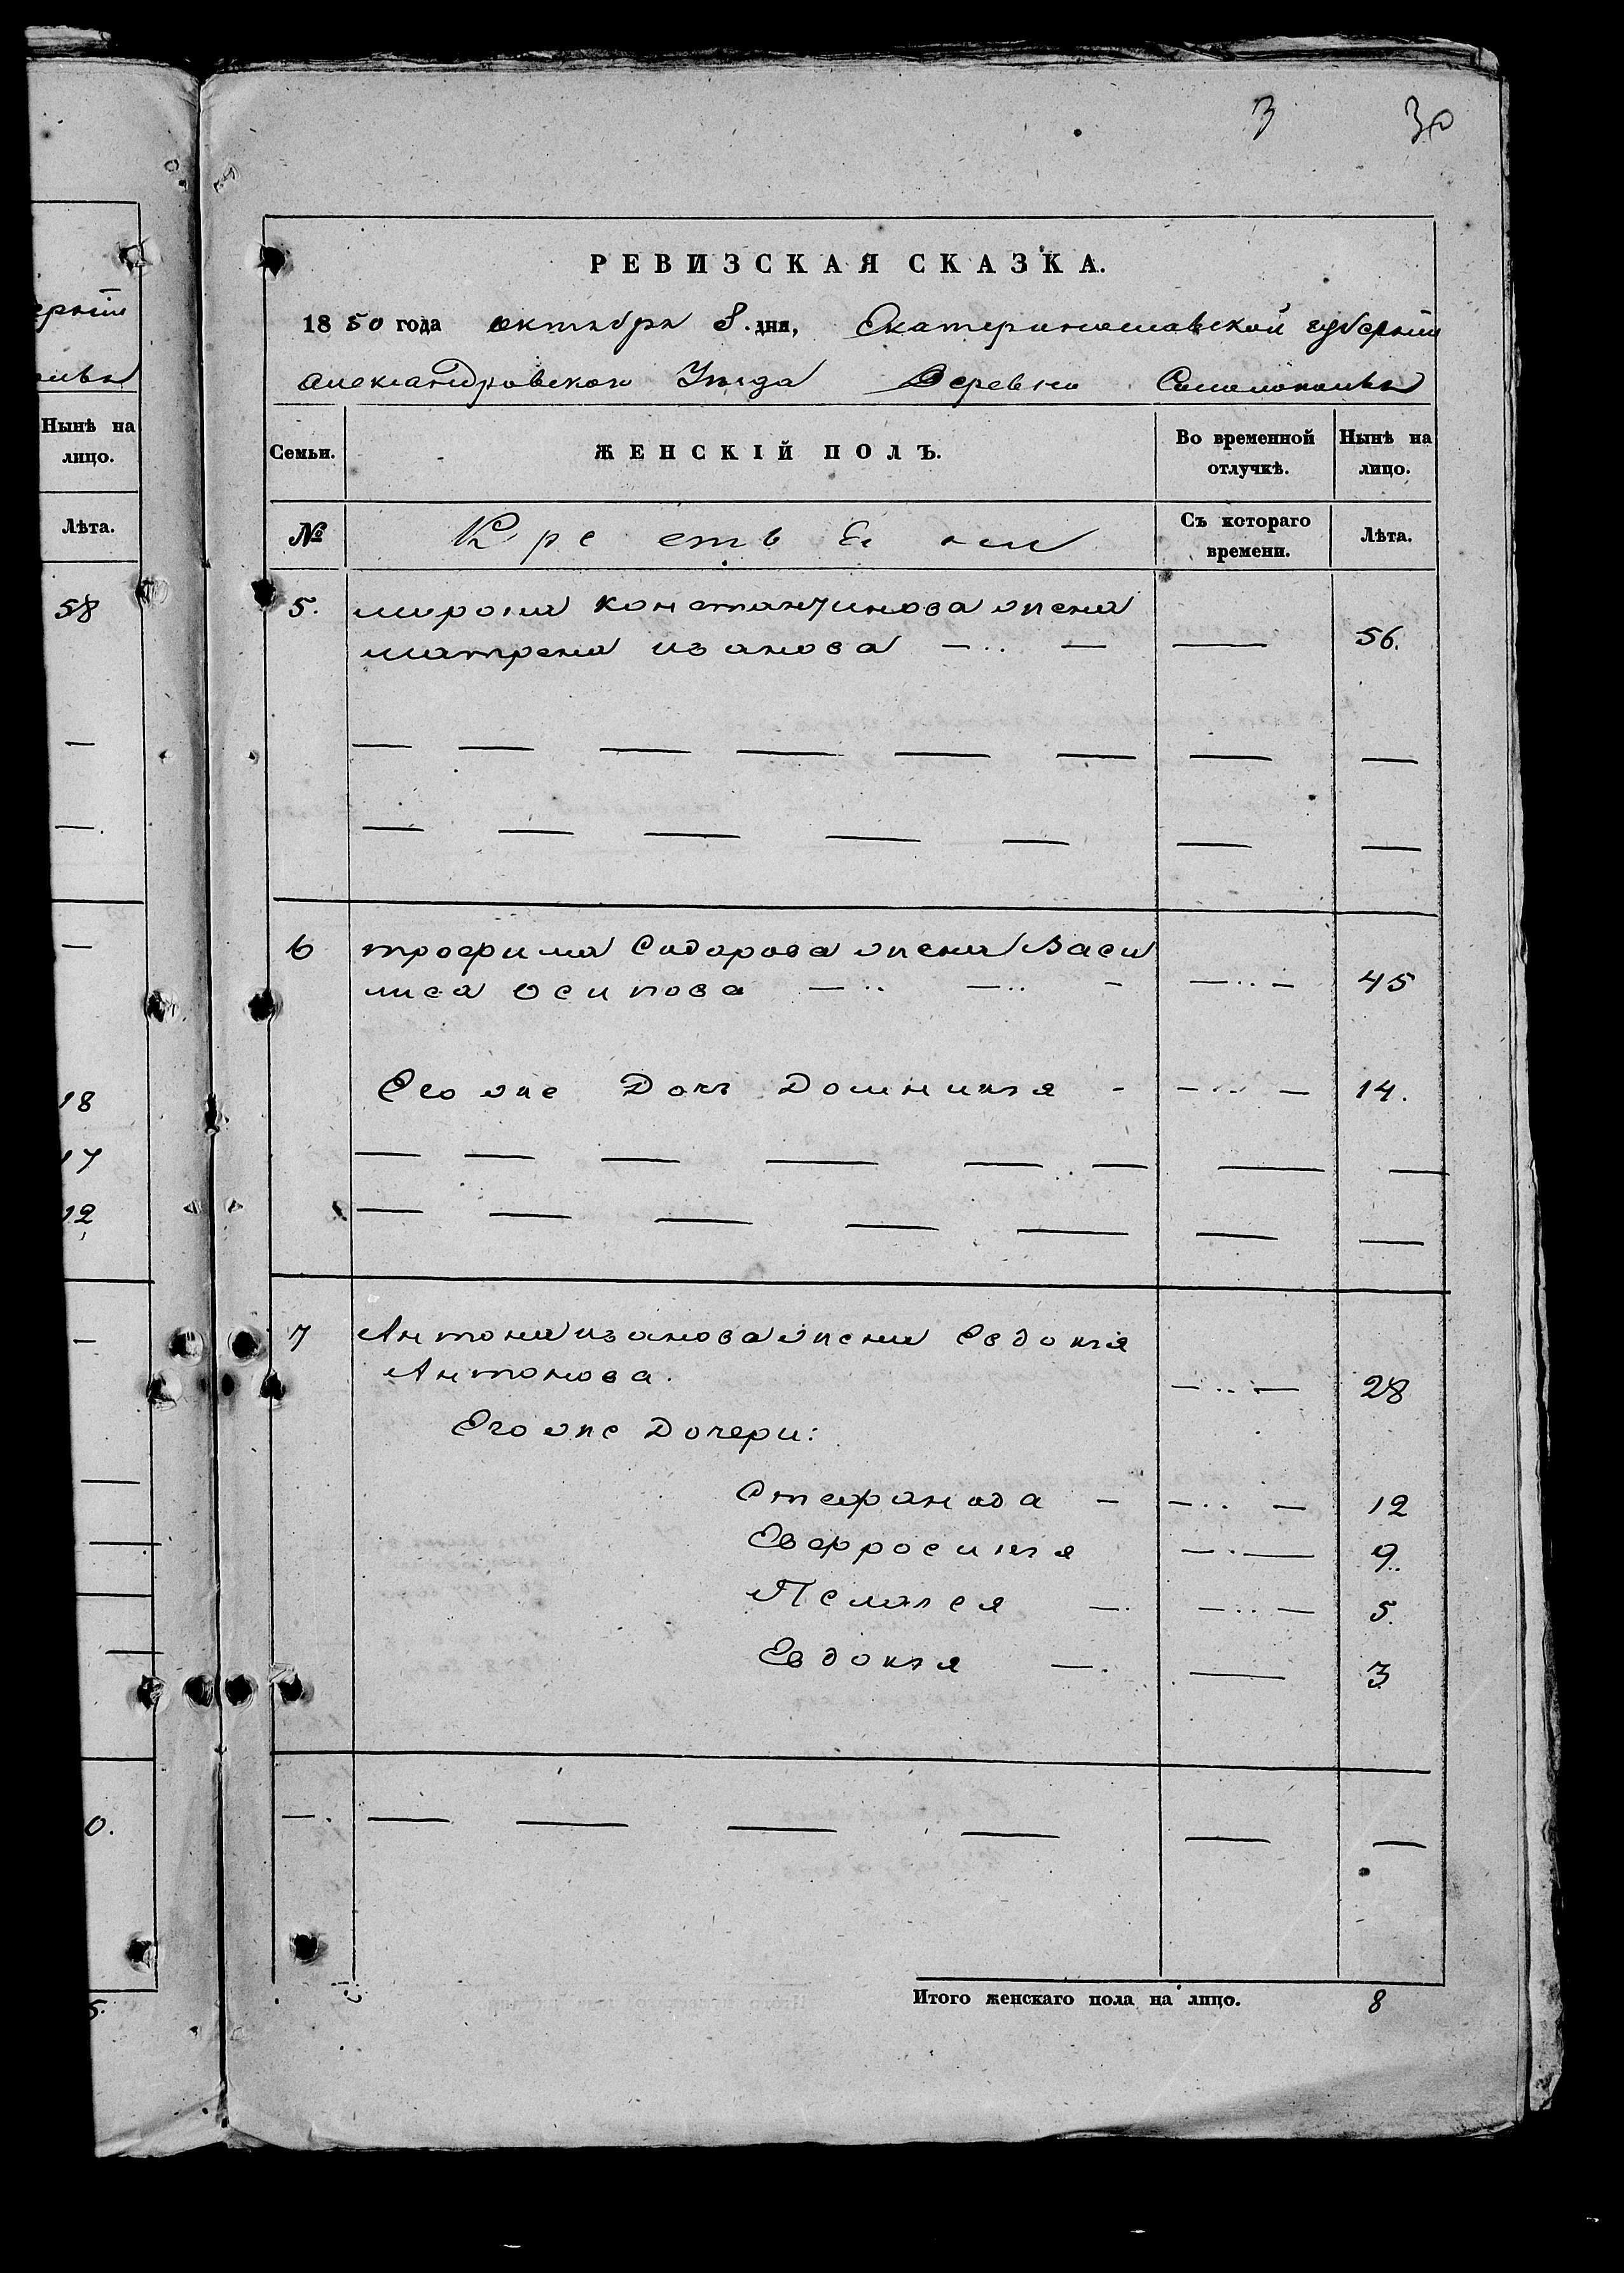 3 30
РЕВИЗСКАЯ СКАЗКА.
1850 года октября 8. дня, Екатеринославской губернии
Александровского Уезда Деревни
Семьи. ЖЕНСКІЙ ПОЛЪ. Во временной отлучкѣ. Нынѣ на лицо.
№ Крестьяне Съ котораго времени. Лѣта.
5. Мирона Константинова жена
Матрена Иванова — .. — — 56.
6 Трофима Сидорова жена Васи
лиса Осипова — .. — .. - — .. — 45
Его же Дочь Домникія - — .. — 14.
7 Антона Иванова жена Евдокія
Антонова. — .. — 28
Его же Дочери:
Стефанида — — .. — 12
Евфросинія — . — 9.
Пелагея — . — .. — 5.
Евдокія — . — 3
Итого женскаго пола на лицо. 8
ерніи
Нынѣ на
лицо.
Лѣта.
58
18
17
12
0.
5.